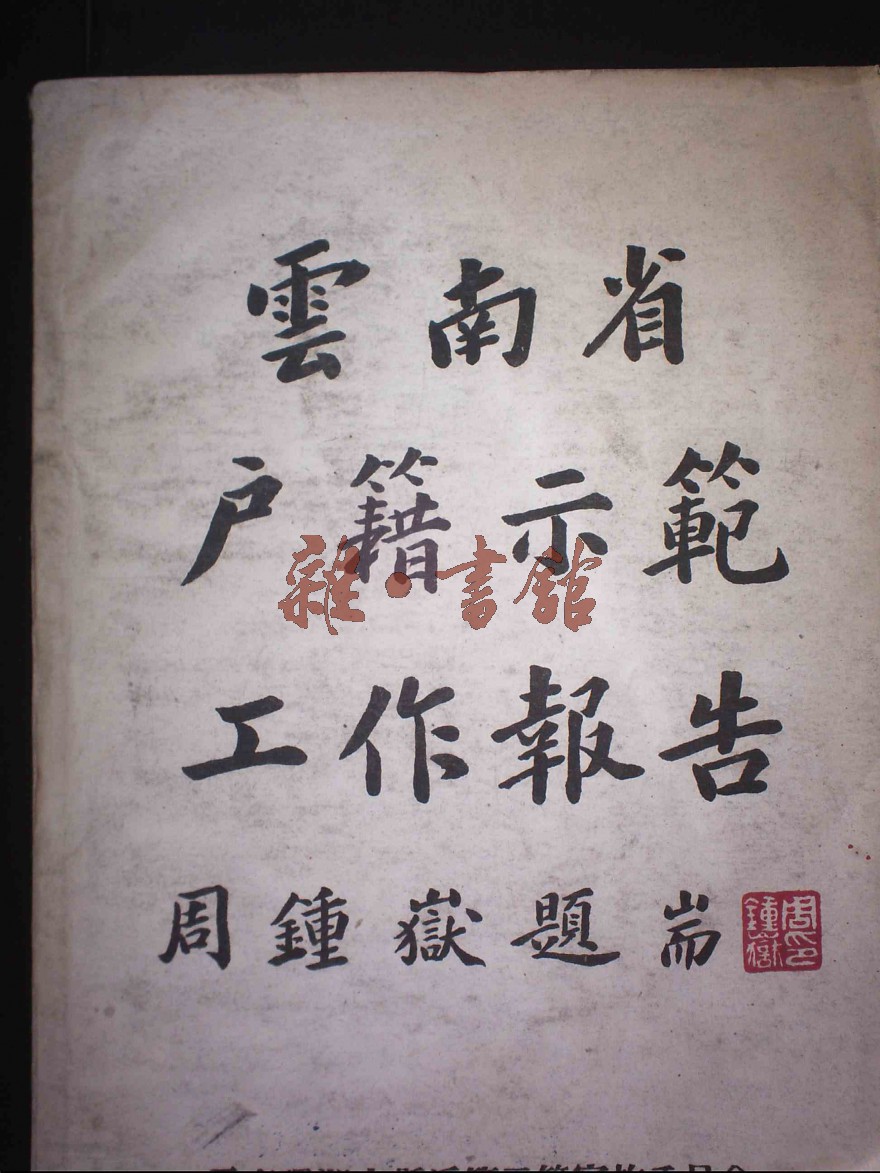 雲南省
户籍示範
雜·書館
工作報告
周鍾嶽題耑
周印鍾嶽